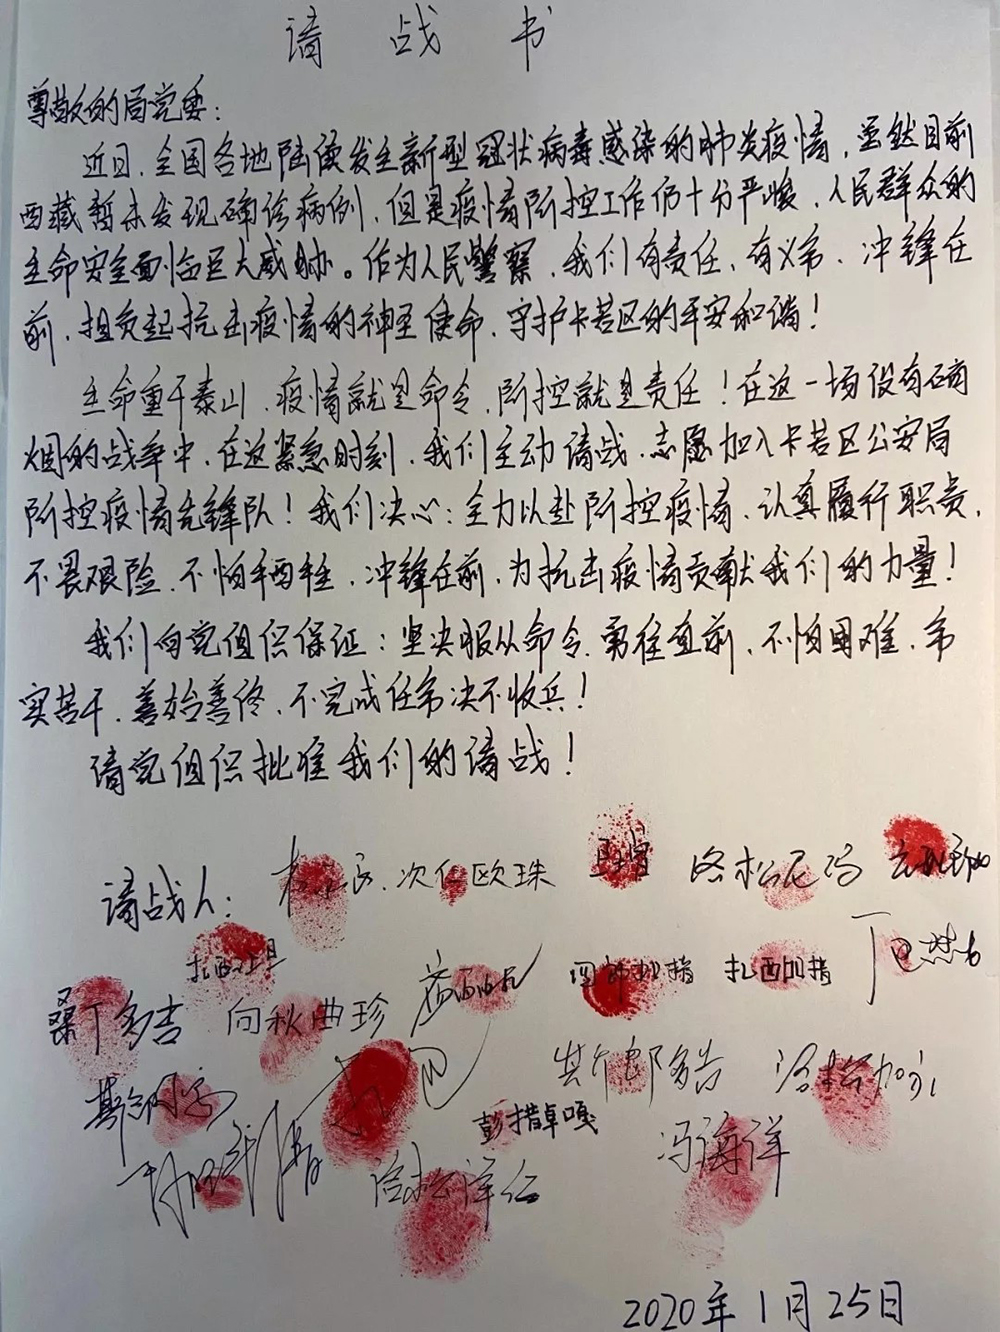 请战书
尊敬的局党委：
近日，全国各地陆续发生新型冠状病毒感染的肺炎疫情，虽然目前
西藏暂未发现确诊病例，但是疫情防控工作仍十分严峻，人民群众的
生命安全面临巨大威胁。作为人民警察，我们有责任、有义务，冲锋在
前，担负起抗击疫情的神圣使命，守护卡若区的平安和谐！
生命重于泰山，疫情就是命令，防控就是责任！在这一场没有硝
烟的战争中，在这紧急时刻，我们主动请战，志愿加入卡若区公安局
防控疫情先锋队！我们决心：全力以赴防控疫情，认真履行职责，
不畏艰险，不怕牺牲，冲锋在前，为抗击疫情贡献我们的力量！
我们向党组织保证：坚决服从命令，勇往直前，不怕困难，务
实苦干，善始善终，不完成任务决不收兵！
请党组织批准我们的请战！
请战人：次仁欧珠 洛松尼玛
扎西四措
桑丁多吉 向秋曲珍
彭措卓嘎 冯海洋
洛松泽仁
2020年1月25日